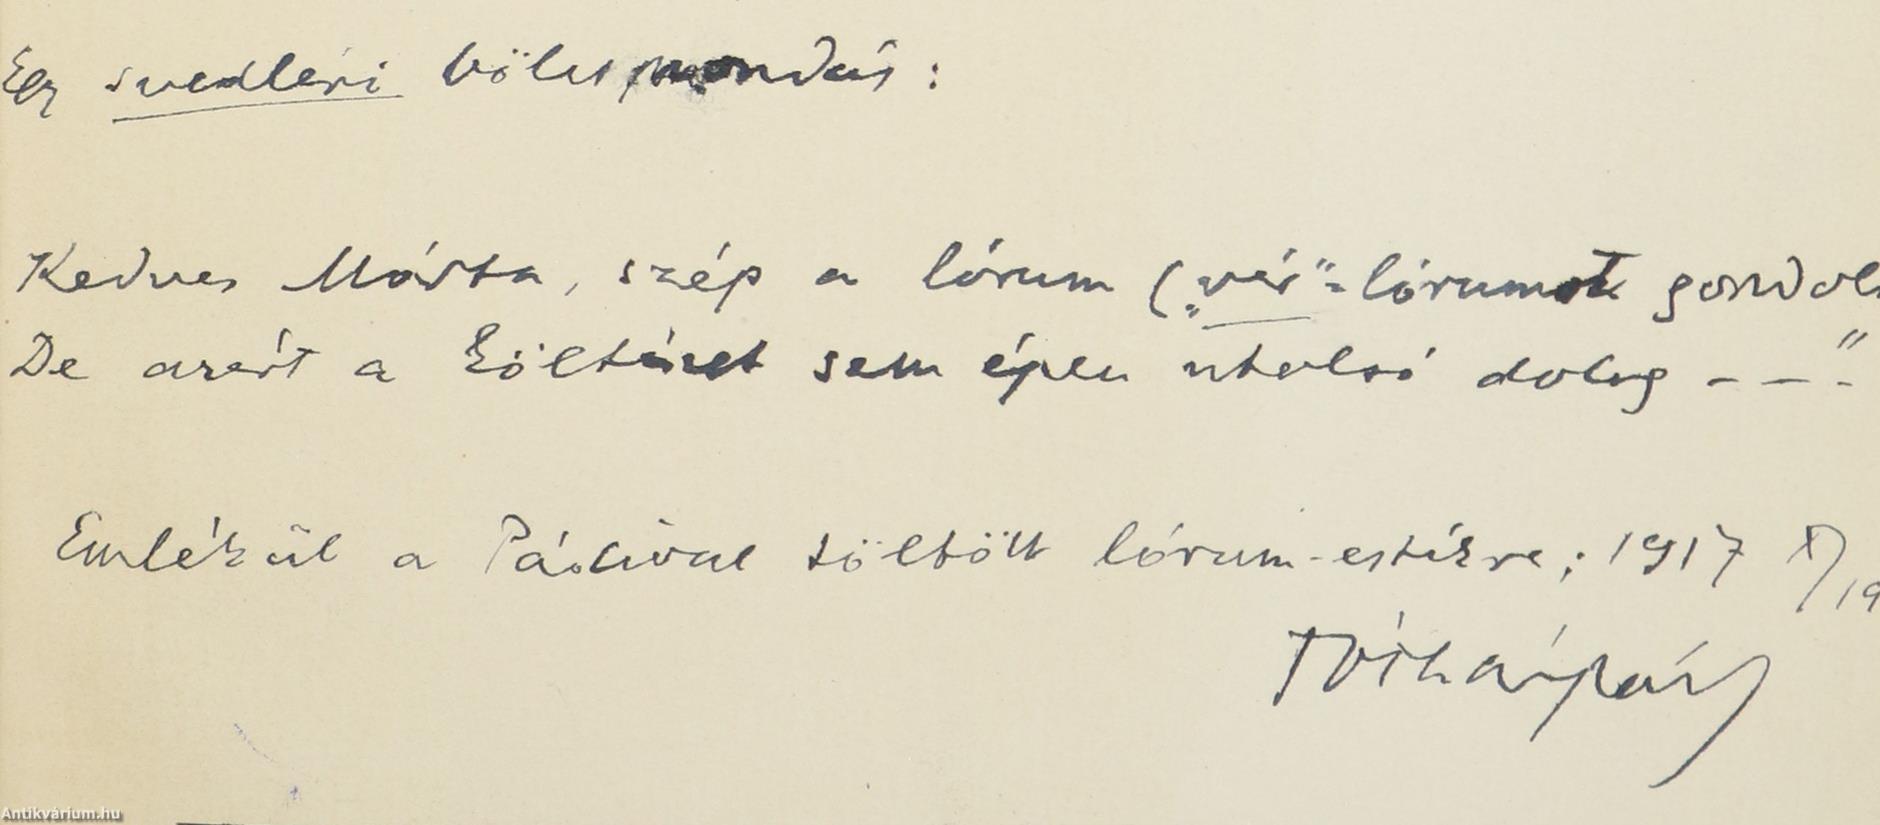 Egy svedléri bölcs mondás:
Kedves Márta, szép a lórum („vér"-lórumot gondol
De azért a költészet sem éppen utolsó dolog - - -"
Emlékül a Pálival töltött lórum-estékre; 1917 X/19
Tóth Árpád
Antikvárium.hu